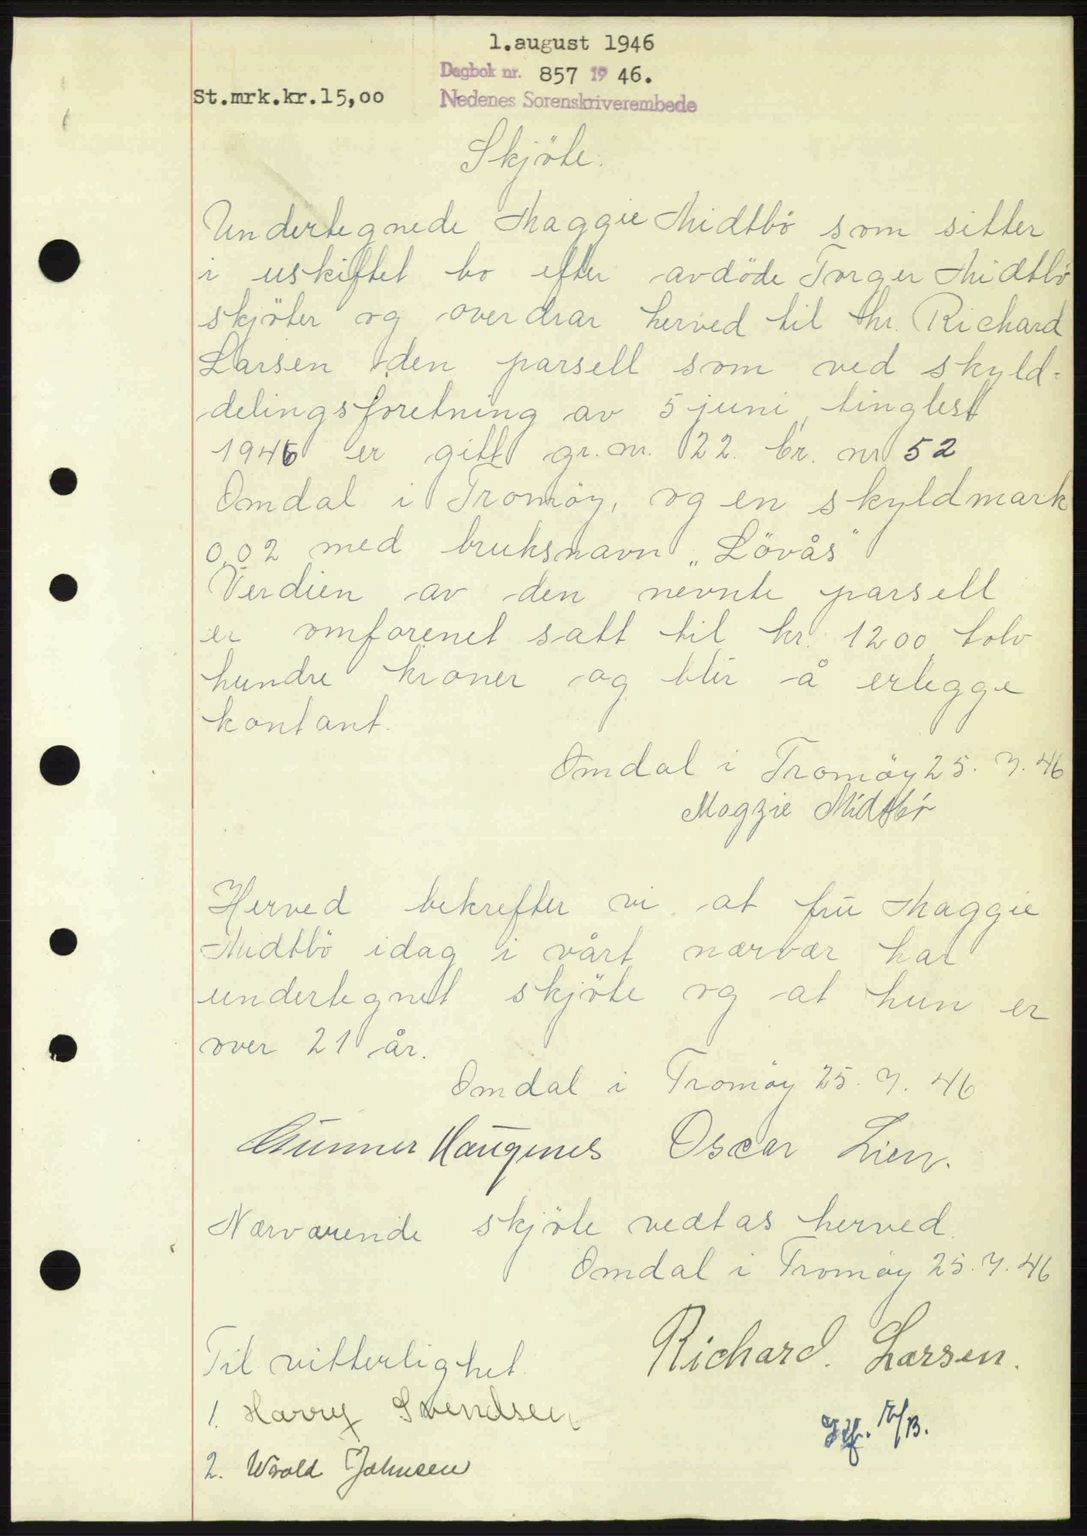 1.august 1946
Dagbok nr. 857 19 46.
St.mrk.kr.15,00
Nedenes Sorenskriverembede
Skjöte.
Undertegnede Maggie Midtbö som sitter
i uskiftet bo efter avdöde Torger Midtbö
skjöter og overdrar herved til hr. Richard
Larsen den parsell som ved skyld-
delingsforetning av 5 juni, tinglest
1946 er gitt gr. nr. 22. br. nr 52
Omdal i Tromöy, og en skyldmark
0,02 med bruksnavn „Lövås"
Verdien av den nevnte parsell
er omforenet satt til kr. 1200 tolv
hundre kroner og blir å erlegge
kontant.
Omdal i Tromöy 25. 7. 46
Maggie Midtbö
Herved bekrefter vi at fru Maggie
Midtbö idag i vårt nærvær har
undertegnet skjöte og at hun er
over 21 år.
Omdal i Tromöy 25. 7. 46
Gunnar Haugenes Oscar Lien.
Nærværende skjöte vedtas herved.
Omdal i Tromöy 25. 7. 46
Til vitterlighet.
Richard. Larsen.
1. Harry Svendsen
2. Johnsen